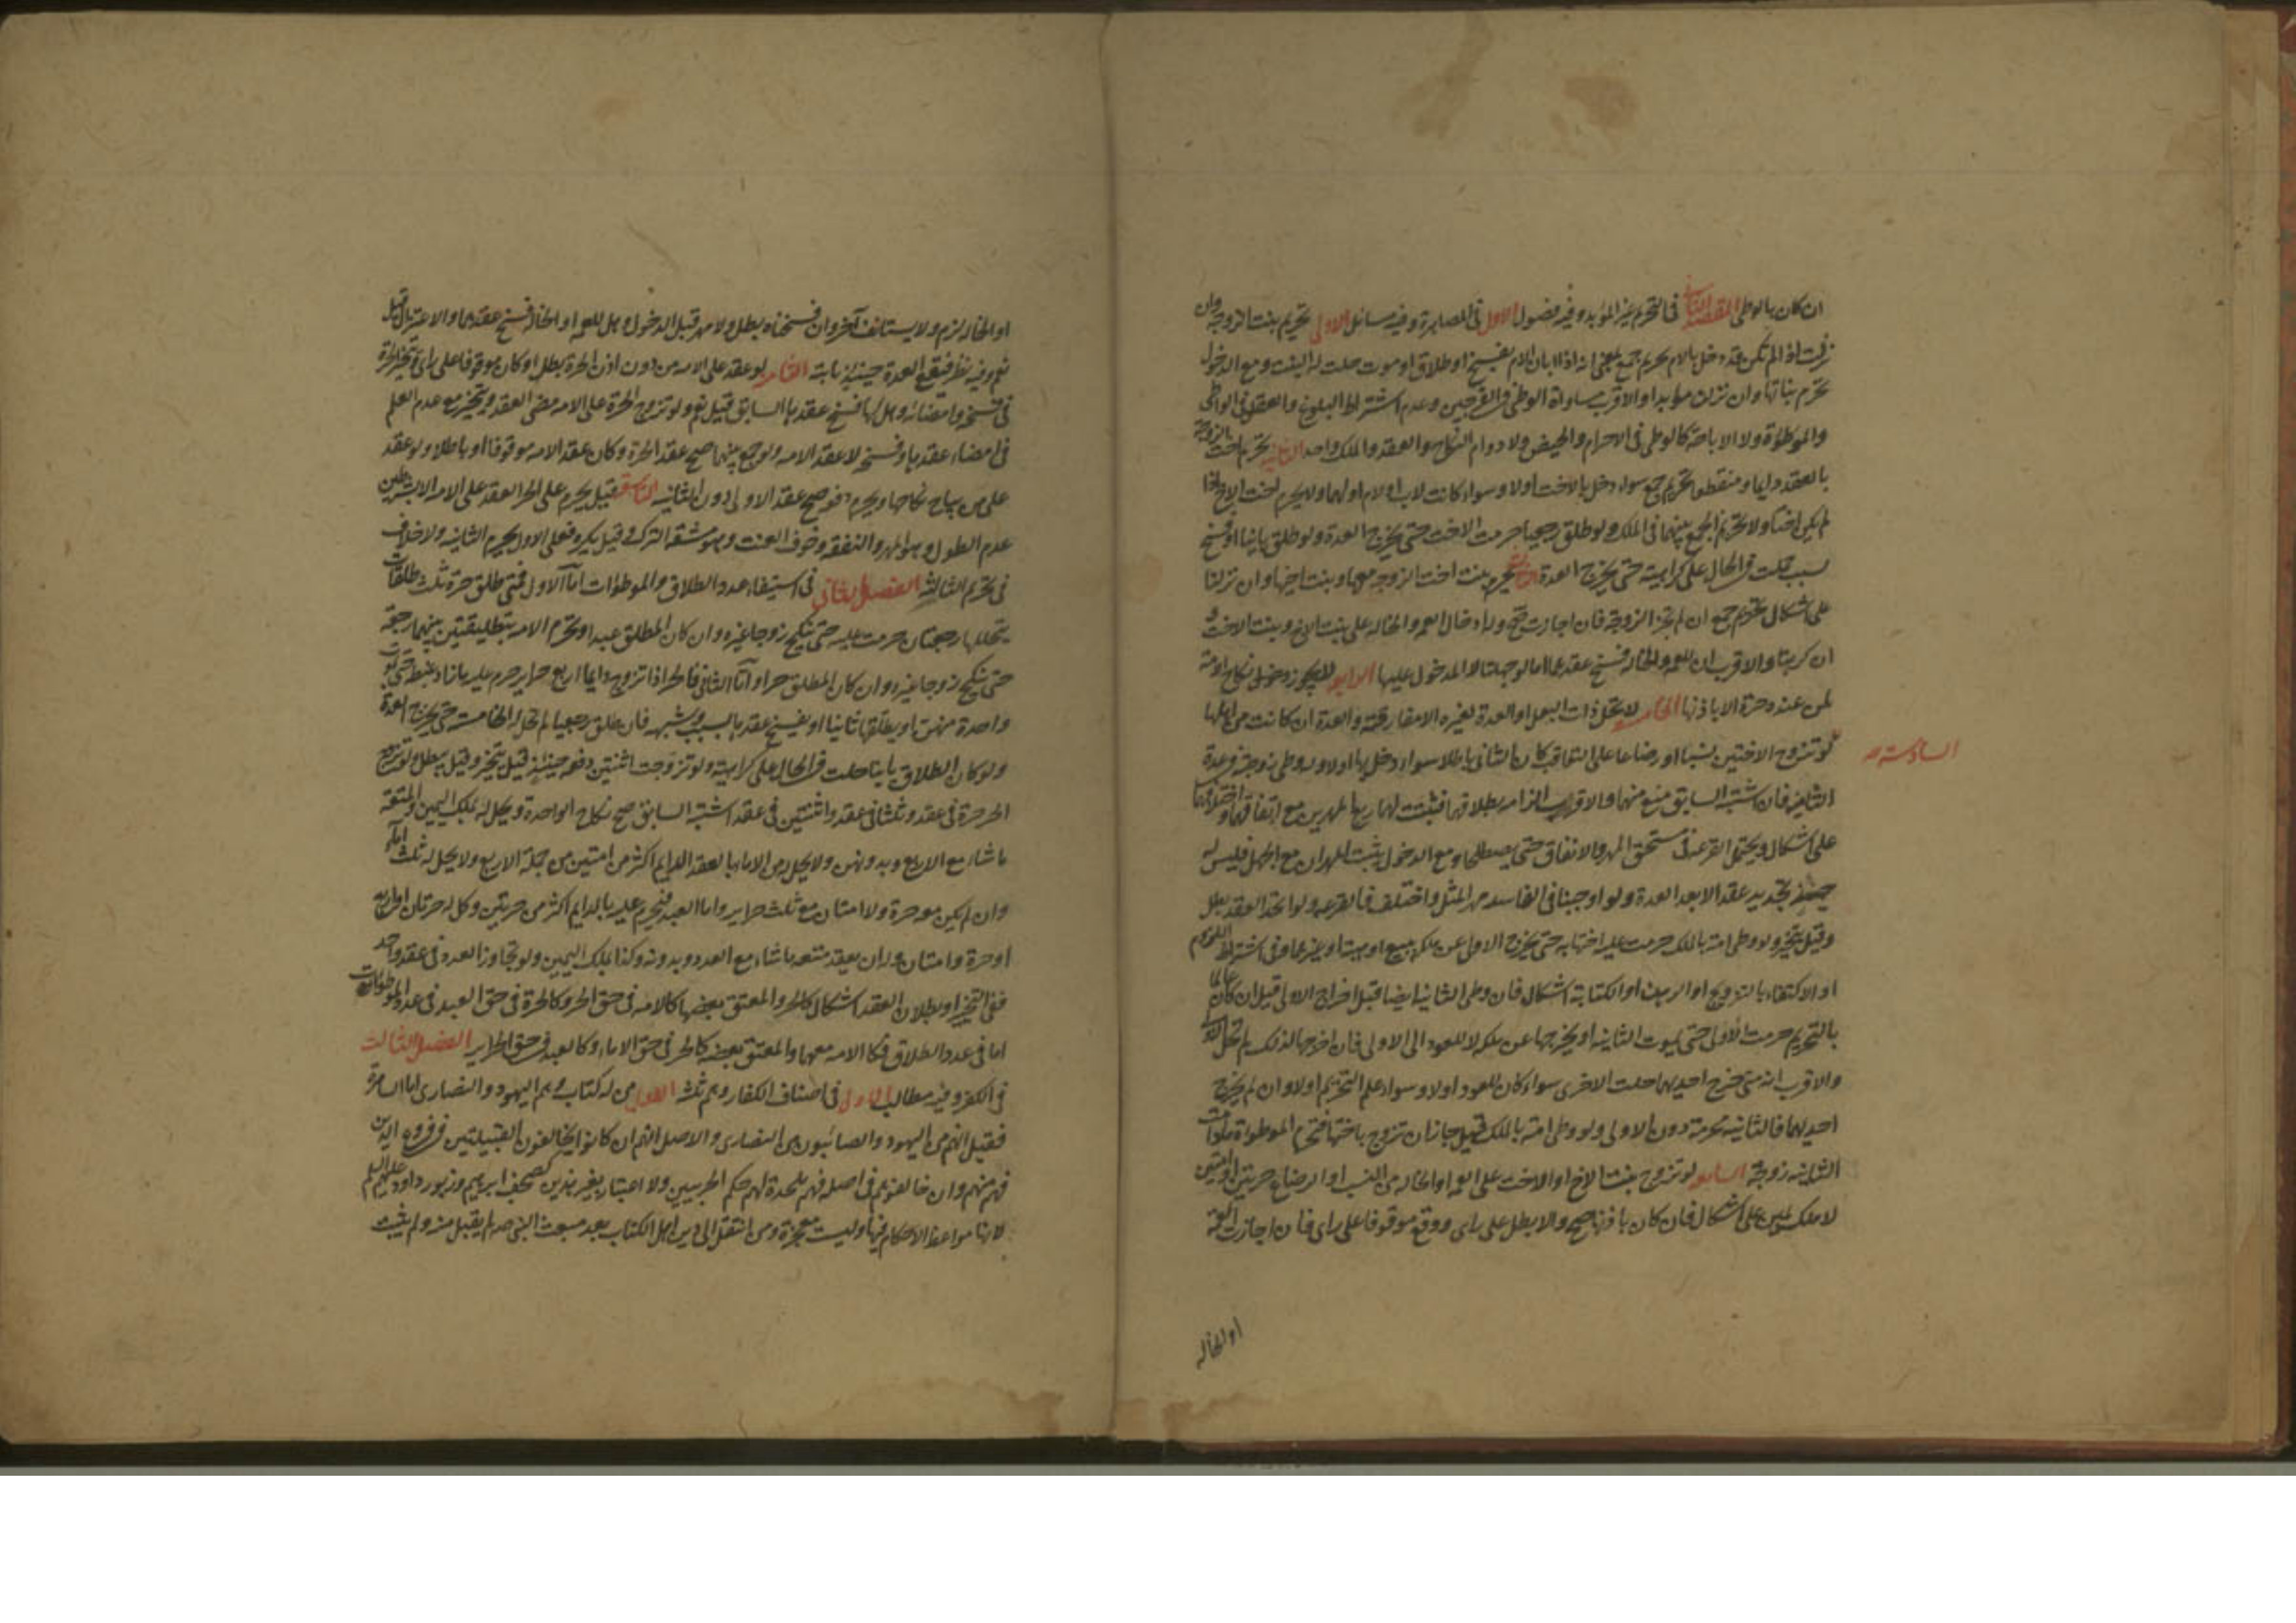 ان كان بالوطى المقصد الثانى فى التحريم غير المؤبد وفيه فصول الاول فى المصاهرة وفيه مسائل الاولى تحريم بنت الزوجة وان
نزلت اذا لم يكن قد دخل بالام تحريم جمع بمعنى انه اذا ابان الام بفسخ او طلاق او موت حلت له البنت ومع الدخول
تحرم بناتها وان نزلن مؤبدا والاقرب مساواة الوطى فى الفرجين وعدم اشتراط البلوغ والعقل فى الواطى
والموطؤة ولا الاباحة كالوطى فى الاحرام والحيض ولا دوام النكاح والعقد والملك واحد الثانية تحرم اخت الزوجة
بالعقد دايما ومنقطعا تحريم جمع سواء دخل بالاخت اولا وسواء كانت لاب او لام او لهما ولا يحرم اخت الاخ اذا
لم يكن اختا ولا تحريم الجمع بينهما فى الملك ولو طلق رجعيا حرمت الاخت حتى تخرج العدة ولو طلق باينا او فسخ
لسبب حلت فى الحال على كراهية حتى يخرج العدة الثالثة تحرم بنت اخت الزوجة معها وبنت اخيها وان نزلتا
على اشكال تحريم جمع ان لم تجز الزوجة فان اجازت صح وله ادخال العمة والخالة على بنت الاخ وبنت الاخت و
ان كرهتا والاقرب ان للعمة والخالة فسخ عقدهما اما لو جهلتا لا المدخول عليها الرابعة لا يجوز دخول نكاح امة
لمن عنده حرة الا باذنها الخامسة لا تحل ذات البعل او العدة لغيره الا مفارقته والعدة ان كانت من اهلها
السادسة
لو تزوج الاختين نسبا او رضاعا على التعاقب كان الثانى باطلا سواء دخل بها اولا وله وطى زوجته فى عدة
الثانية فان اشتبه السابق منع منهما والاقرب الزامه بطلاقهما فيثبت لهما ربع المهرين مع اتفاقهما واختلافهما
على اشكال ويحتمل القرعة فى مستحق المهر والانفاق حتى يصطلحا ومع الدخول يثبت المهران مع الجهل فليس له
حينئذ تجديد عقد الا بعد العدة ولو اوجبنا فى الفاسد مهر المثل واختلف فالقرعة ولو اتحد العقد بطل
وقيل يتخير ولو وطى امة بالملك حرمت عليه اختها به حتى يخرج الاولى عن ملكه ببيع او هبة او غيرهما وفى اشتراط اللزوم
او الاكتفاء بالتزويج او الرهن او الكتابة اشكال فان وطى الثانية ايضا قبل اخراج الاولى قيل ان كان عالما
بالتحريم حرمت الاولى حتى تموت الثانية او يخرجها عن ملكه لا للعود الى الاولى فان اخرجها لذلك لم تحل الاولى
والاقرب انه متى خرج احديهما حلت الاخرى سواء كان للعود اولا وسواء علم التحريم اولا وان لم يخرج
احديهما فالثانية محرمة دون الاولى ولو وطى امة بالملك قيل جاز ان تزوج باختها فتحرم الموطوءة ما دامت
الثانية زوجة السابعة لو تزوج بنت الاخ او الاخت على العمة او الخالة من النسب او الرضاع حرتين او امتين
لا ملك يمين على اشكال فان كان باذنها صح والا بطل على راى ووقع موقوفا على راى فان اجازت العمة
او الخالة
او الخالة لزم ولا يستانف آخر وان فسخناه بطل ولا مهر قبل الدخول وهل للعمة او الخالة فسخ عقدهما والاعتزال قيل
نعم وفيه نظر فتقع العدة حينئذ باينة الثامنة لو عقد على الامة من دون اذن الحرة بطل او كان موقوفا على راى فتتخير الحرة
فى فسخه وامضائه وهل لها فسخ عقدها السابق قيل نعم ولو تزوج الحرة على الامة مضى العقد وتتخير مع عدم العلم
فى امضاء عقدها وفسخه لا عقد الامة ولو جمع بينهما صح عقد الحرة وكان عقد الامة موقوفا او باطلا ولو عقد
على من يباح نكاحها ويحرم دفعة صح عقد الاولى دون الثانية التاسعة قيل يحرم على الحر العقد على الامة الا بشرطين
عدم الطول وهو المهر والنفقة وخوف العنت وهو مشقة الترك وقيل يكره فعلى الاول يحرم الثانية ولا خلاف
فى تحريم الثالثة الفصل الثانى فى استيفاء عدد الطلاق والموطوءات اما الاول فمتى طلق حرة ثلث طلقات
يتخللها رجعتان حرمت عليه حتى تنكح زوجا غيره وان كان المطلق عبدا وتحرم الامة بتطليقتين بينهما رجعة
حتى تنكح زوجا غيره وان كان المطلق حرا واما الثانى فالحر اذا تزوج دايما اربع حراير حرم عليه ما زاد غبطة حتى تموت
واحدة منهن او يطلقها باينا او يفسخ عقدها بسبب وشبهه فان طلق رجعيا لم تحل له الخامسة حتى يخرج العدة
ولو كان الطلاق باينا حلت فى الحال على كراهية ولو تزوجت اثنتين دفعة حينئذ قيل يتخير وقيل يبطل ولو تزوج
الحر حرة فى عقد وثلثا فى عقد واثنتين فى عقد اشتبه السابق صح نكاح الواحدة ويحل له بملك اليمين والمتعة
ما شاء مع الاربع وبدونهن ولا يحل من الاماء بالعقد الدايم اكثر من امتين من جملة الاربع ولا يحل له ثلث اماء
وان لم يكن معه حرة ولا امتان مع ثلث حراير واما العبد فيحرم عليه بالدايم اكثر من حرتين وكل له حرتان او اربع اماء
او حرة وامتان وله ان يعقد متعة ما شاء مع العدد وبدونه وكذا بملك اليمين ولو تجاوز العدد فى عقد واحد
ففى التخيير او بطلان العقد اشكال كالحر والمعتق بعضها كالامة فى حق الحر وكالحرة فى حق العبد فى عدد الموطوءات
اما فى عدد الطلاق فكالامة معهما والمعتق بعضه كالحر فى حق الاماء وكالعبد فى حق الحراير الفصل الثالث
فى الكفر وفيه مطالب الاول فى اصناف الكفار وهم ثلثة الاول من له كتاب وهم اليهود والنصارى اما السامرة
فقيل انهم من اليهود والصابئون من النصارى والاصل انهم ان كانوا يخالفون القبيلتين فى فروع الدين
فهم منهم وان خالفوهم فى اصله فهم ملحدة لهم حكم الحربيين ولا اعتبار بغير هذين كصحف ابرهيم وزبور داود عليهم السلام
لانها مواعظ لا احكام فيها وليست معجزة ومن انتقل الى دين اهل الكتاب بعد مبعث النبى صه لم يقبل منه ولم يثبت